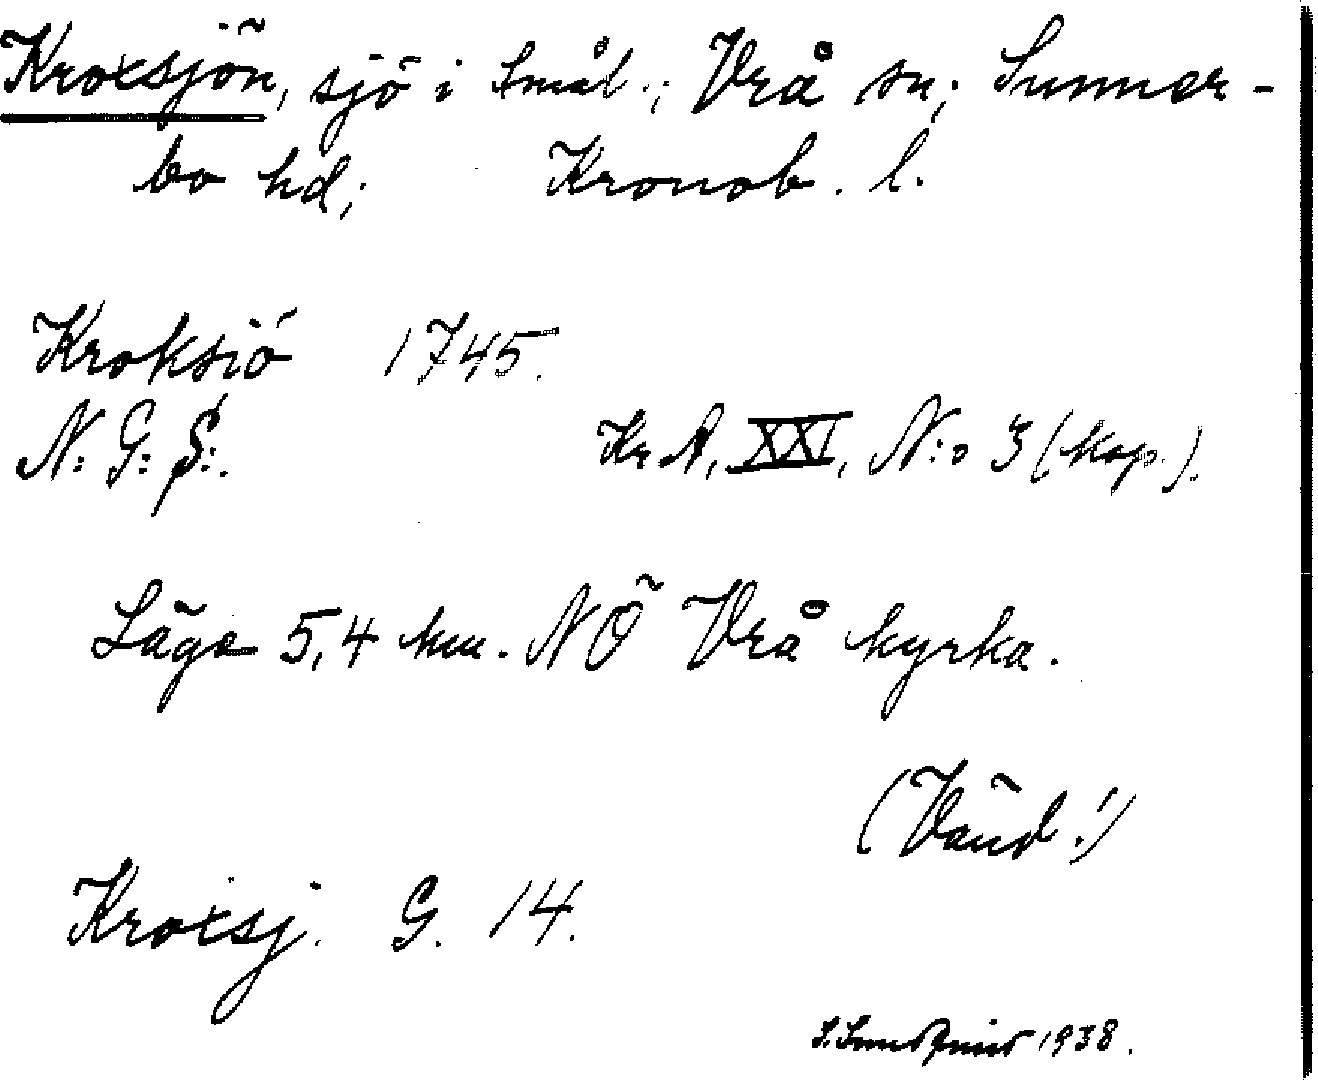 Kroxsjön, sjö i Smål.; Vrå sn; Sunner-
bo hd; Kronob. l.
Kroksiö 1745.
N: G: S:. Kr A, XXI, N:o 3 (kop.).
Läge 5,4 km. NÖ Vrå kyrka.
(Vänd!)
Kroxsj. G. 14.
1938.